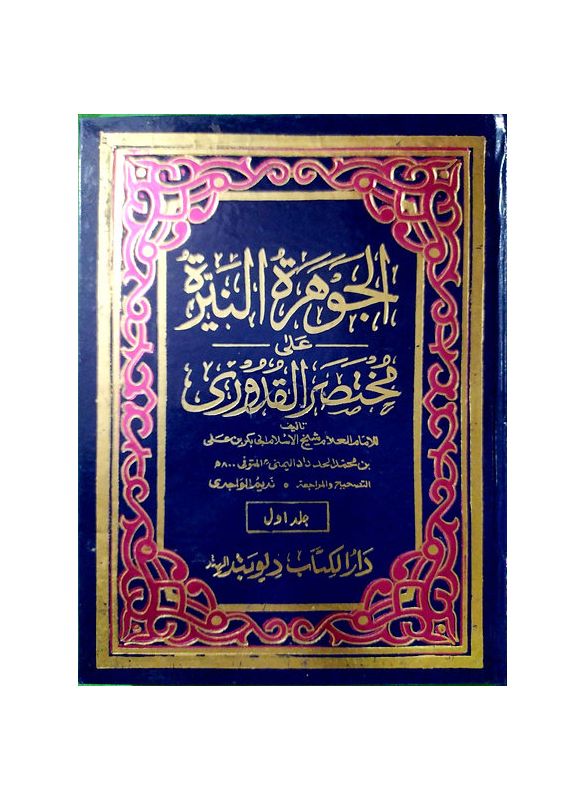 الجَوْهَرَةُ النَيِّرَةُ
عَلىٰ
مُخْتَصَرِ القُدُوْرِيْ
تاليف
للامام العلام شيخ الاسلام ابى بكر بن على
بن محمد الحداد اليمنى المتوفى ٨٠٠ھ
التصحيح والمراجعة ● نديم الواجدى
جلد اول
دَارُ الكِتَاب ديوبَند الهند